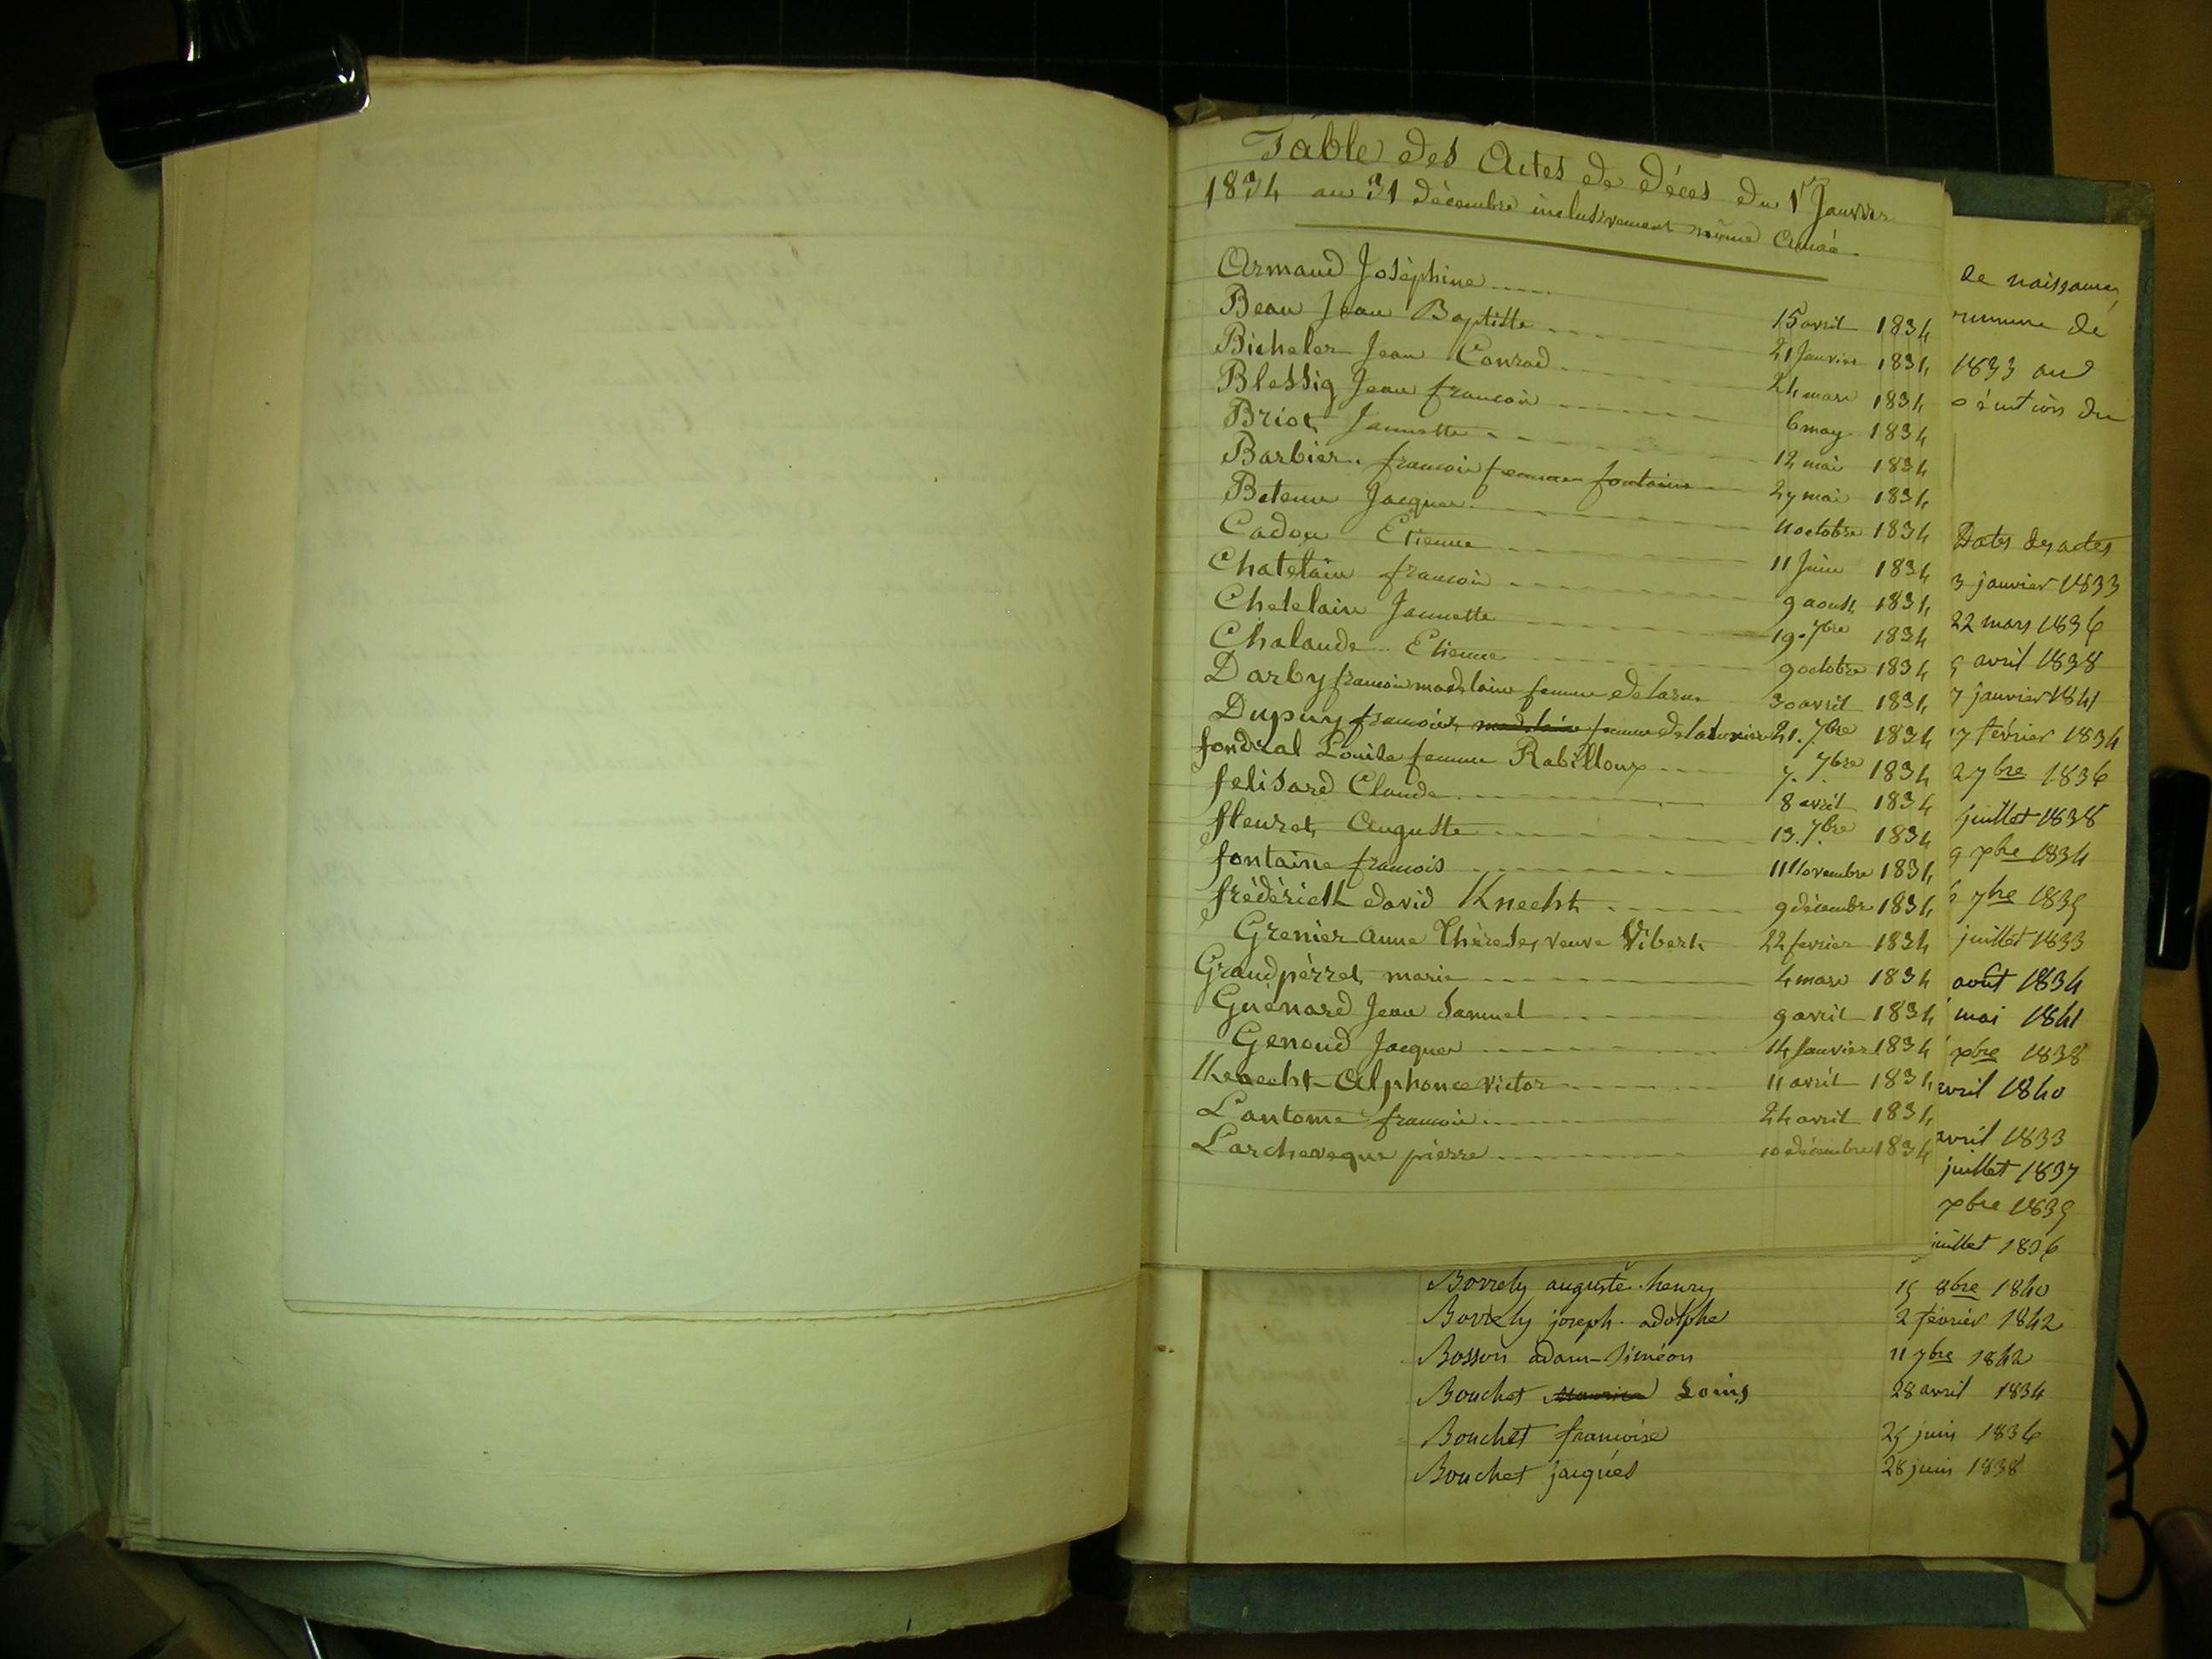 Table des Actes de décés du 1r Janvier
1834 au 31 décembre inclusivement même Année
Armand Joséphine 15 avril 1834
Beau Jean Baptiste 21 Janvier 1834
Bicheler Jean Conrad 24 mars 1834
Blessig Jean françois 6 may 1834
Briot Jannette 12 mai 1834
Barbier françois femme fontaine 27 mai 1834
Betenn Jacques 11 octobre 1834
Cadou Etienne 11 Juin 1834
Chatelain françois 9 aoust 1834
Chetelain Jannette 19. 7bre 1834
Chalande Etienne 9 octobre 1834
Darby françoise madelaine femme Delarue 30 avril 1834
Dupuy françoise femme 21. 7bre 1834
fondral Louise femme Rabilloux 7. 7bre 1834
felisard Claude 8 avril 1834
fleuret Auguste 13. 7bre 1834
fontaine francois 11 Novembre 1834
frédérich david Knecht 9 décembre 1834
Grenier Anne Thérese, veuve Vibert 22 fevrier 1834
Grandpérret marie 4 mars 1834
Guénard Jean Samuel 9 avril 1834
Genoud Jacques 14 Janvier 1834
Knecht Alphonce victor 11 avril 1834
Lantome françois 24 avril 1834
Larcheveque piérre 10 décembre 1834
de naissances
mmune de
1833 au
Dates des actes
3 janvier 1833
22 mars 1836
9 avril 1838
7 janvier 1841
17 février 1834
27 bre 1836
juillet 1838
9 xbre 1834
6 7bre 1839
juillet 1833
août 1834
mai 1841
xbre 1838
avril 1840
avril 1833
juillet 1837
xbre 1839
juillet 1836
Borrely auguste henry 19 8bre 1840
Borrely joseph adolphe 2 février 1842
Bosson adam-siméon 11 7bre 1842
Bouchet Maurice Louis 28 avril 1834
Bouchet francoise 29 juin 1836
Bouchet jacques 28 juin 1838